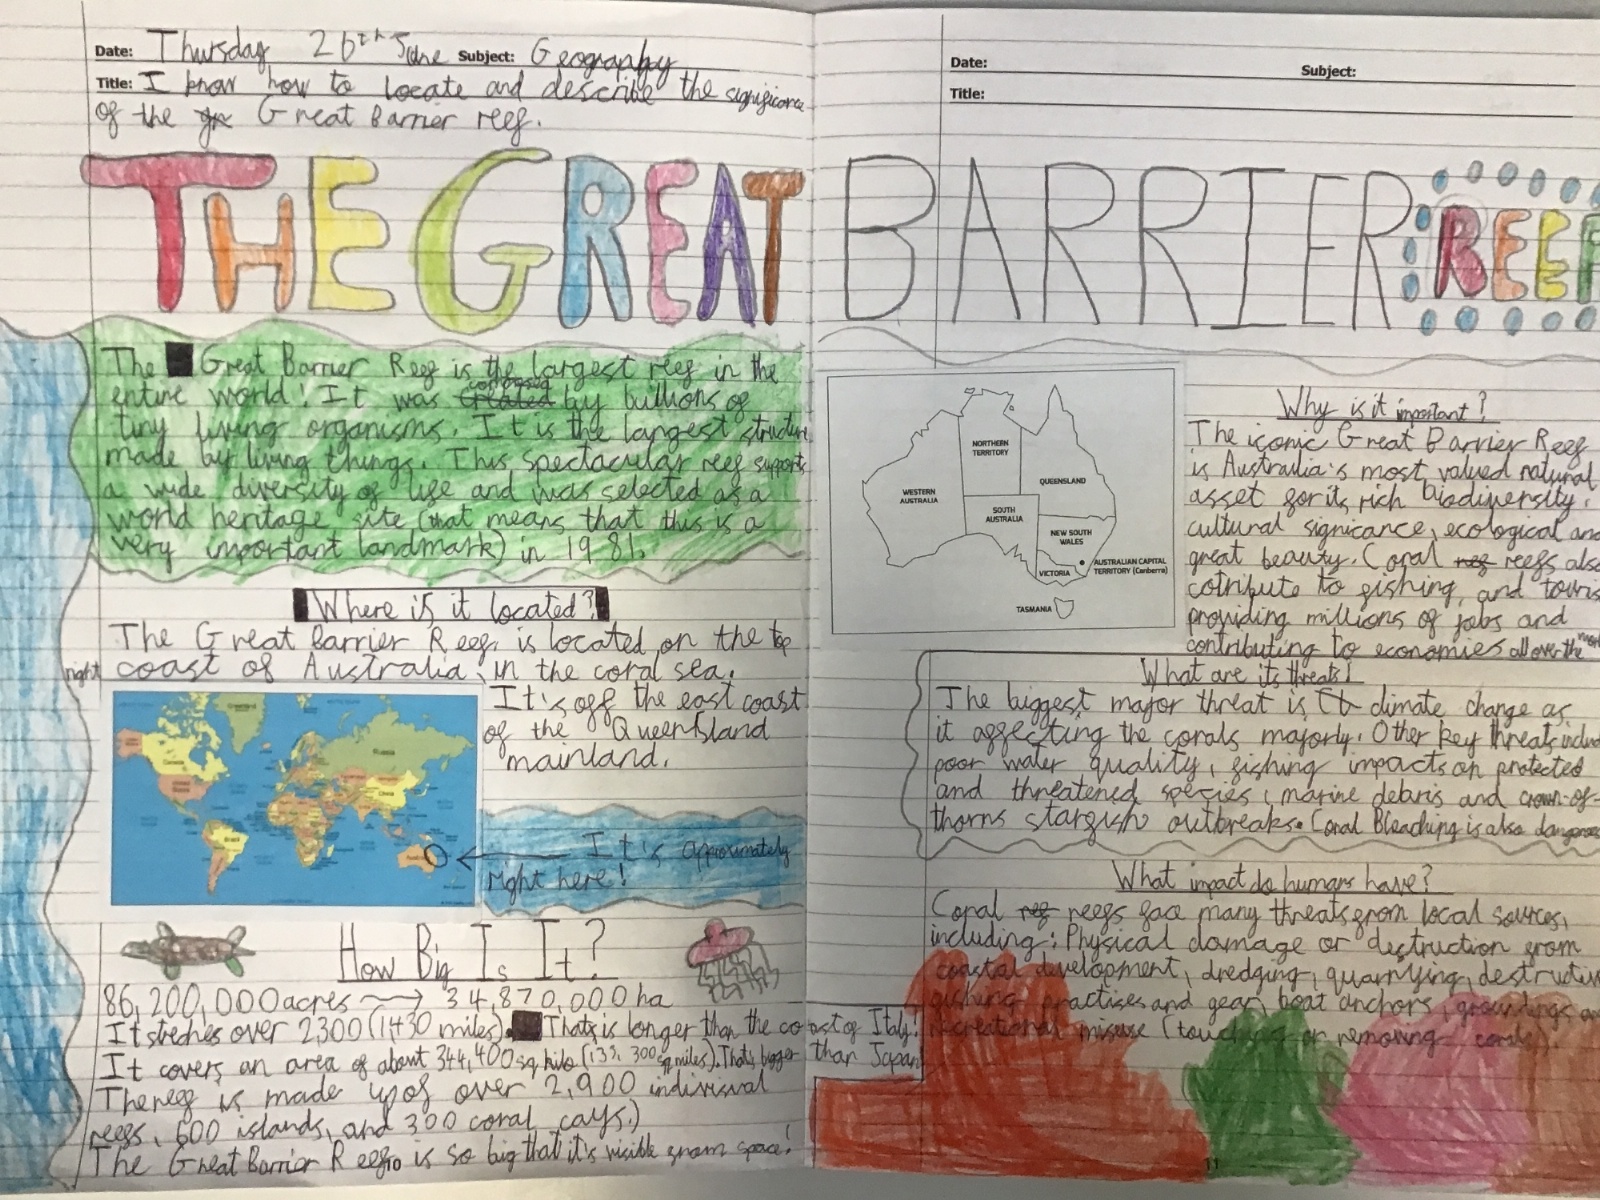 Date: Thursday 26th June Subject: Geography
Title: I know how to locate and describe the significance
of the Great Barrier reef.
THE GREAT
The Great Barrier Reef is the largest reef in the
entire world! It was composed by billions of
tiny living organisms. It is the largest structure
made by living things. This spectacular reef supports
a wide diversity of life and was selected as a
world heritage site (that means that this is a
very important landmark) in 1981.
Where is it located?
The Great Barrier Reef is located on the top
right coast of Australia, in the coral sea.
It's off the east coast
of the Queensland
mainland.
It's approximately
right here!
How Big Is It?
86,200,000 acres → 34,870,000 ha
It streches over 2300 (1430 miles). Thats is longer than the coast of Italy.
It covers an area of about 344,400 sq kilo (133, 300 sq miles). That's bigger than Japan
The reef is made up of over 2,900 indivisual
reefs, 600 islands, and 300 coral cays.)
The Great Barrier Reef is so big that it's visible from space!
10
Date: Subject:
Title:
BARRIER REEF
NORTHERN
TERRITORY
WESTERN
AUSTRALIA
QUEENSLAND
SOUTH
AUSTRALIA
NEW SOUTH
WALES
VICTORIA
AUSTRALIAN CAPITAL
TERRITORY (Canberra)
TASMANIA
Why is it important?
The iconic Great Barrier Reef
is Australia's most valued natural
asset for its rich biodiversity,
cultural signicance, ecological and
great beauty. Coral reefs also
cotribute to fishing, and touris
providing millions of jobs and
contributing to economies all over the
What are its threats!
The biggest major threat is climate change as
it affecting the corals majorly. Other key threats includ
poor water quality, fishing impacts on protected
and threatened species, marine debris and crown-of-
thorns starfish outbreaks. Coral Bleaching is also dangerous
What impact do humans have?
Coral reefs face many threats from local sources,
including: Physical damage or destruction from
coastal development, dredging, quarrying, destructive
fishing practises and gear, boat anchors, groundings, an
recreational misuse (touching or removing corals).
11